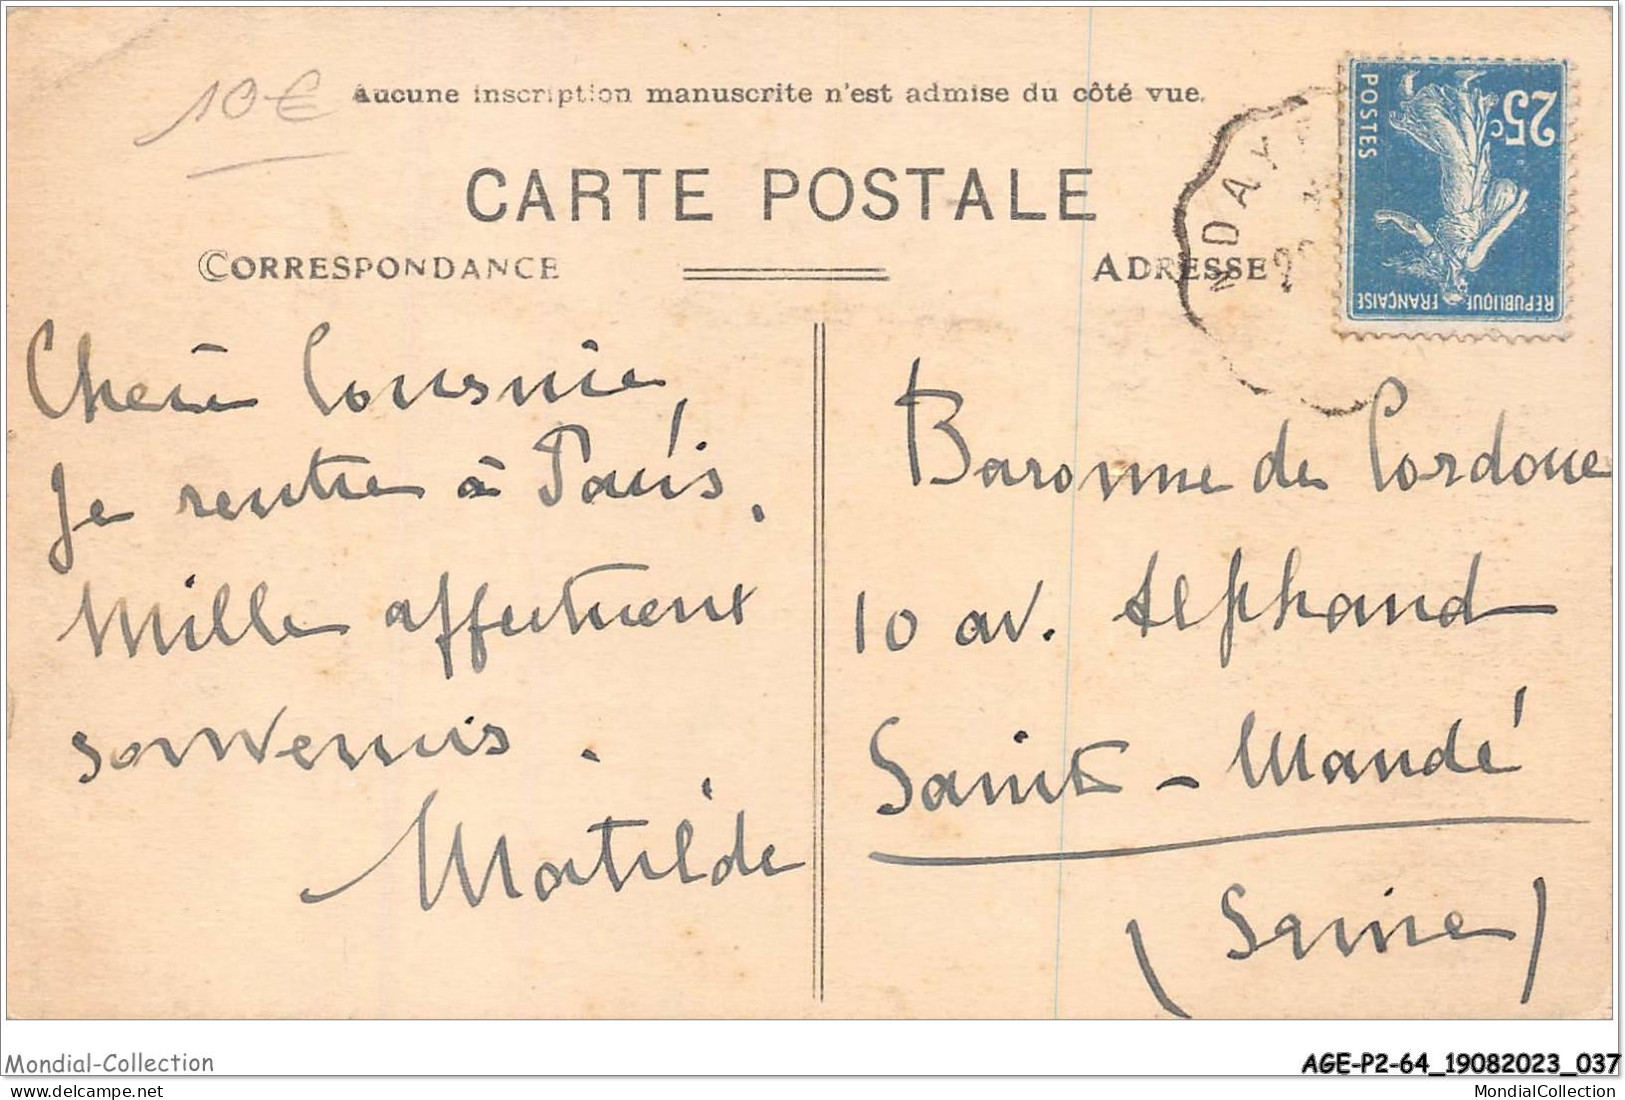 10€
Aucune inscription manuscrite n'est admise du côté vue.
CARTE POSTALE
CORRESPONDANCE
ADRESSE
NDAY
POSTES
25c
REPUBLIQUE FRANÇAISE
Chère Cousine,
Je rentre à Paris.
Mille affectueux
souvenirs.
Matilde
Baronne de Cordoue
10 av. Alphand
Saint-Mandé
(Seine)
Mondial-Collection
AGE-P2-64_19082023_037
https://www.delcampe.net
MondialCollection